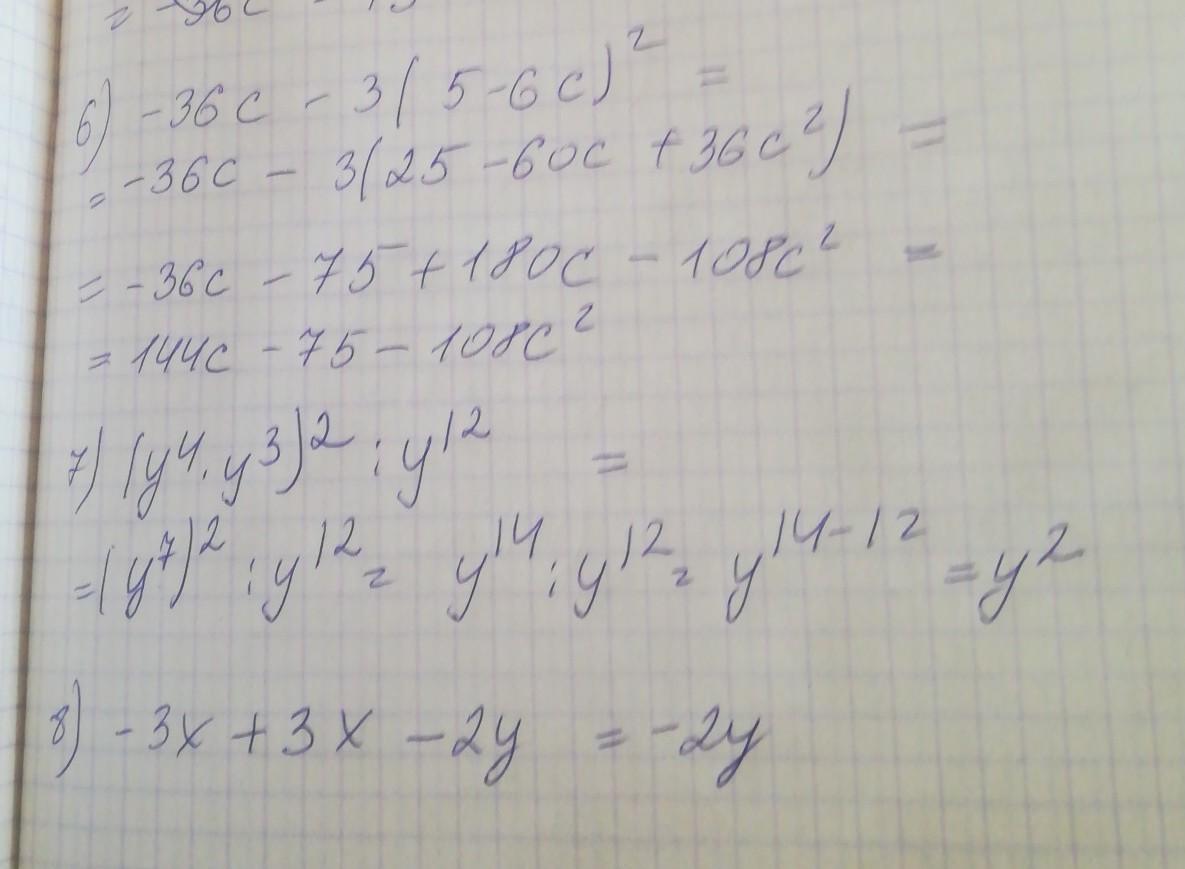 6) -36c - 3(5-6c)²=
= -36c - 3(25-60c+36c²)=
= -36c - 75+180c - 108c² =
= 144c - 75 - 108c²
7) (y⁴·y³)²:y¹² =
=(y⁷)²:y¹²= y¹⁴:y¹²= y¹⁴⁻¹²=y²
8) -3x+3x-2y = -2y